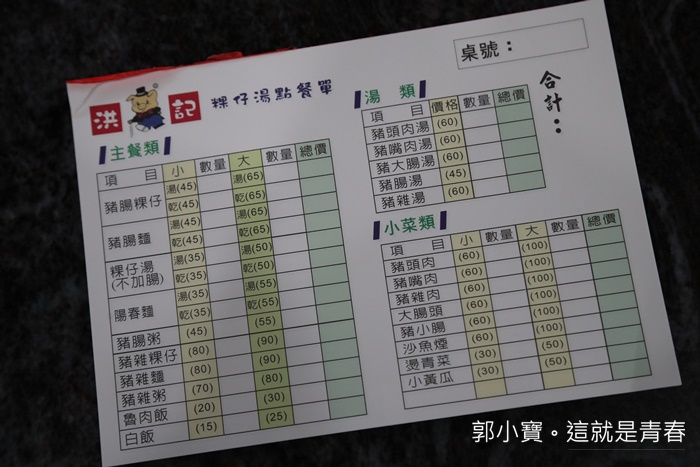 桌號：
洪 記 粿仔湯點餐單
合計：
主餐類
項 目 小 數量 大 數量 總價
豬腸粿仔 湯(45) 湯(65)
乾(45) 乾(65)
豬腸麵 湯(45) 湯(65)
乾(45) 乾(65)
粿仔湯 湯(35) 湯(50)
(不加腸) 乾(35) 乾(50)
陽春麵 湯(35) 湯(55)
乾(35) 乾(55)
豬腸粥 (45) (55)
豬雜粿仔 (80) (90)
豬雜麵 (80) (90)
豬雜粥 (70) (80)
魯肉飯 (20) (30)
白飯 (15) (25)
湯 類
項 目 價格 數量 總價
豬頭肉湯 (60)
豬嘴肉湯 (60)
豬大腸湯 (60)
豬腸湯 (45)
豬雜湯 (60)
小菜類
項 目 小 數量 大 數量 總價
豬頭肉 (60) (100)
豬嘴肉 (60) (100)
豬雜肉 (60) (100)
大腸頭 (60) (100)
豬小腸 (60) (100)
沙魚煙 (60) (100)
燙青菜 (30) (50)
小黃瓜 (30) (50)
郭小寶。這就是青春